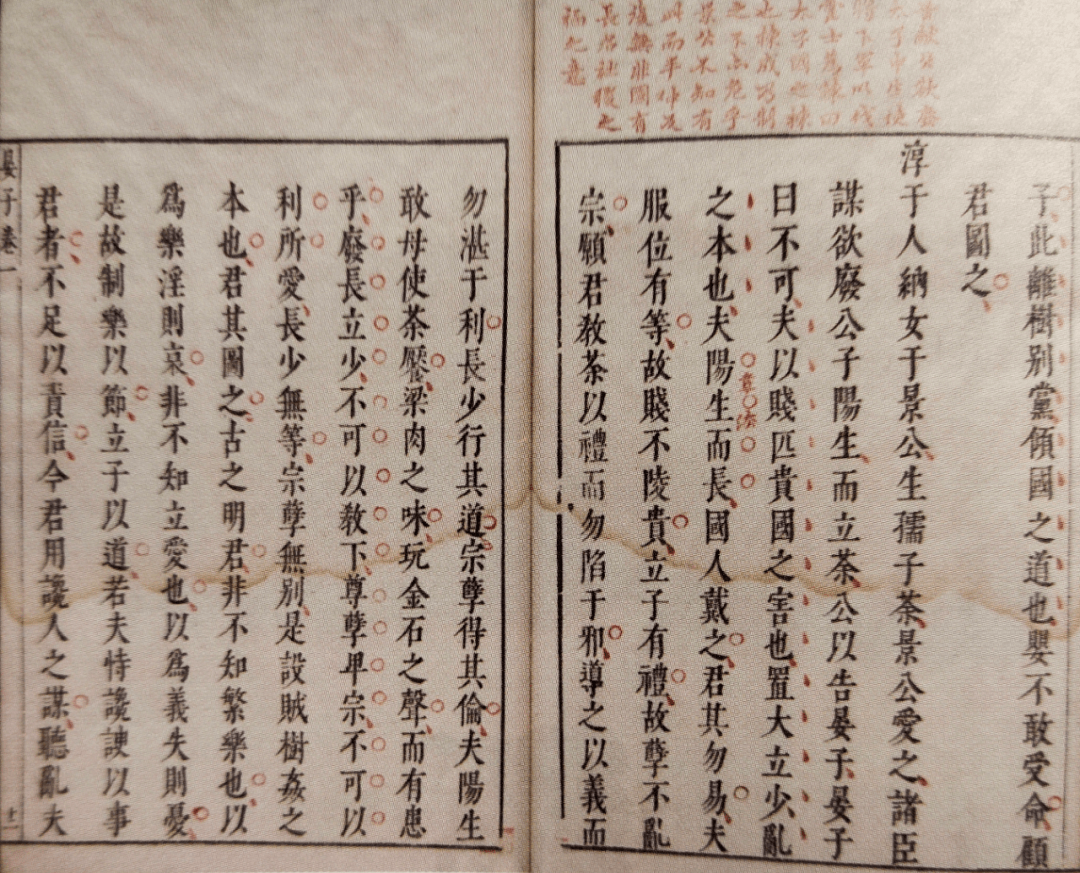 晉獻公欲廢
太子申生使
將下軍以伐
霍士蒍諫曰
太子國之棟
也棟成乃制
之不亦危乎
景公不知有
此而平仲及
復無非圖有
長君社稷之
福之意
子、此離樹別黨傾國之道也嬰不敢受命、願
君圖之、
淳于人納女于景公、生孺子荼、景公愛之、諸臣
謀欲廢公子陽生、而立荼、公以告晏子、晏子
曰不可、夫以賤匹貴國之害也、置大立少、亂
之本也、夫陽生而長、國人戴之、君其勿易、夫
服位有等、故賤不陵貴、立子有禮、故孽不亂
宗、願君教荼以禮而勿陷于邪、導之以義而
勿湛于利、長少行其道、宗孽得其倫、夫陽生
敢毋使荼饜梁肉之味、玩金石之聲、而有患
乎、廢長立少、不可以教下、尊孽卑宗、不可以
利所愛、長少無等、宗孽無別、是設賊樹姦之
本也、君其圖之、古之明君、非不知繁樂也、以
爲樂淫則哀、非不知立愛也、以爲義失則憂、
是故制樂以節、立子以道、若夫恃讒諛以事
君者、不足以責信、今君用讒人之謀、聽亂夫
晏子卷一
十一